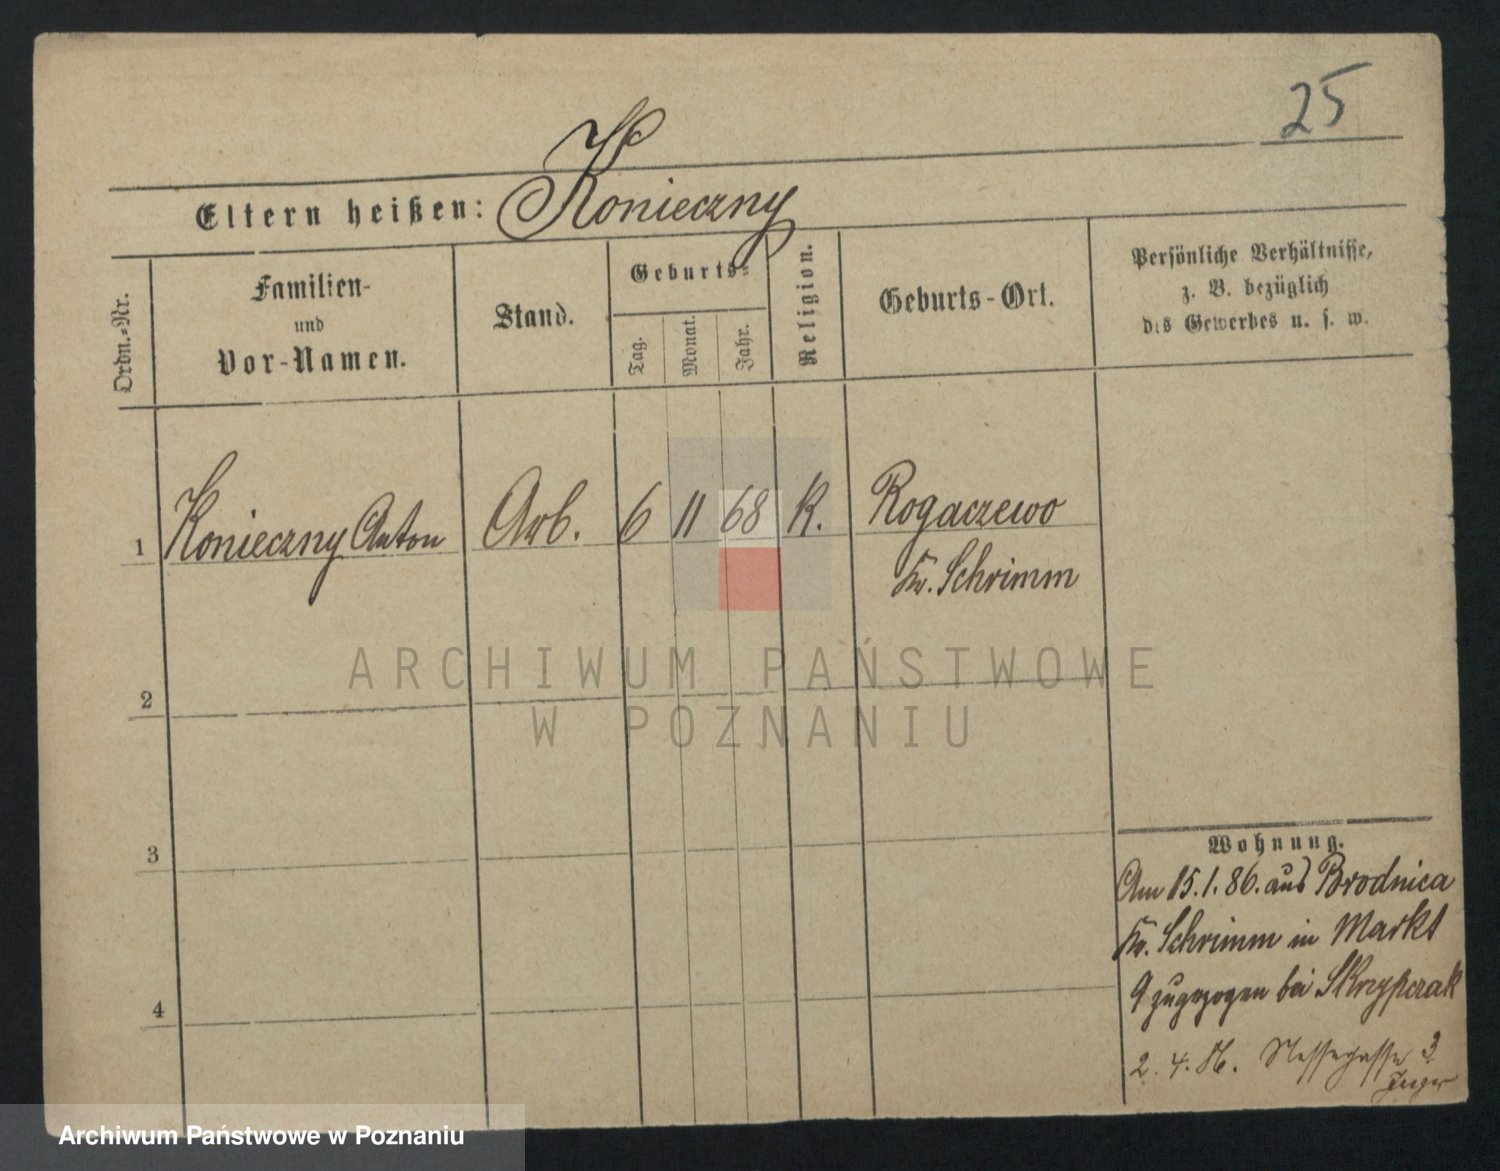 25
Eltern heißen: Konieczny
Ordn.-Nr.
Familien-
und
Vor-Namen.
Stand.
Geburts-
Tag.
Monat.
Jahr.
Religion.
Geburts-Ort.
Persönliche Verhältnisse,
z. B. bezüglich
des Gewerbes u. s. w.
1 Konieczny Anton Arb. 6 11 68 K. Rogaczewo
Kr. Schrimm
ARCHIWUM PAŃSTWOWE
W POZNANIU
2
3
4
Wohnung.
Am 15.1.86. aus Brodnica
Kr. Schrimm in Markt
9 zugezogen bei Skrzypczak
2. 4. 3
Archiwum Państwowe w Poznaniu